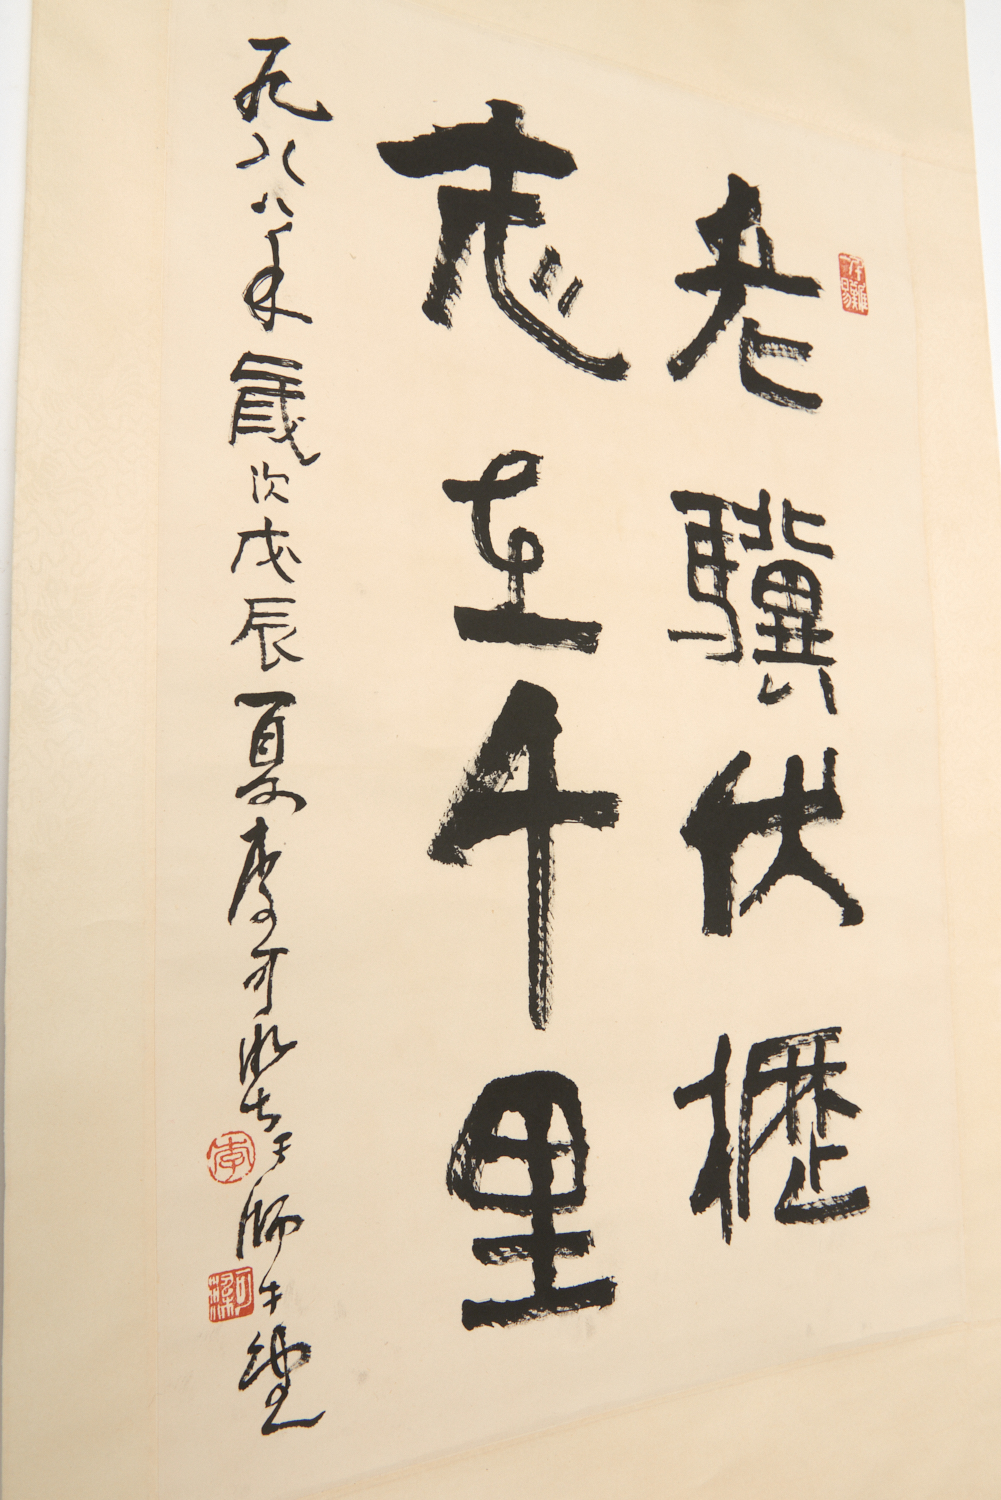 老驥伏櫪
志在千里
一九八八年歲次戊辰夏李可染書于師牛堂
李
可染